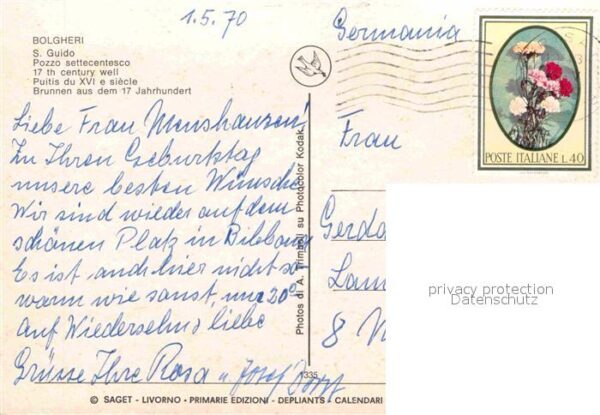 1.5.70
Germania
BOLGHERI
S. Guido
Pozzo settecentesco
17 th century well
Puitis du XVI e siècle
Brunnen aus dem 17 Jahrhundert
POSTE ITALIANE L.40
Liebe Frau Menshausen!
Zu Ihren Geburtstag
unsere besten Wünsche
Wir sind wieder auf dem
schönen Platz in Bibbona
Es ist auch hier nicht so
warm wie sonst, nur 20°
auf Wiedersehn liebe
Grüsse Ihre Rosa u. Josef
Photos di A. Trimboli su Photocolor Kodak
Frau
Gerda
8
privacy protection
Datenschutz
1335
© SAGET - LIVORNO - PRIMARIE EDIZIONI - DEPLIANTS - CALENDARI